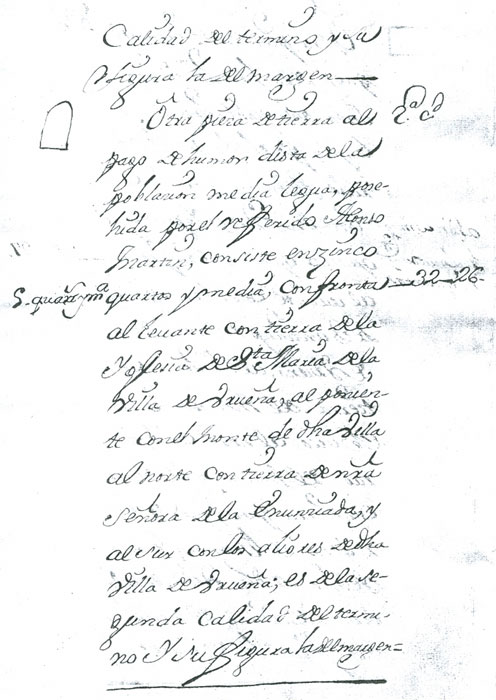 Calidad del termino y su
figura la del margen
Otra pieza de tierra al
pago de humon dista de la
poblacion media legua, pose-
hida por el referido Alonso
Martin, consiste en zinco
5. quart. y mª quartos y media, confronta 22 26
al levante con tierra de la
Yglesia de Sta Maria de la
Villa de Urueña, al ponien-
te con el monte de dha Villa
al norte con tierra de nra
señora de la Anunciada, y
al sur con los aliores de dha
Villa de Urueña; es de la se-
gunda calidad del termi-
no y su figura la del margen=